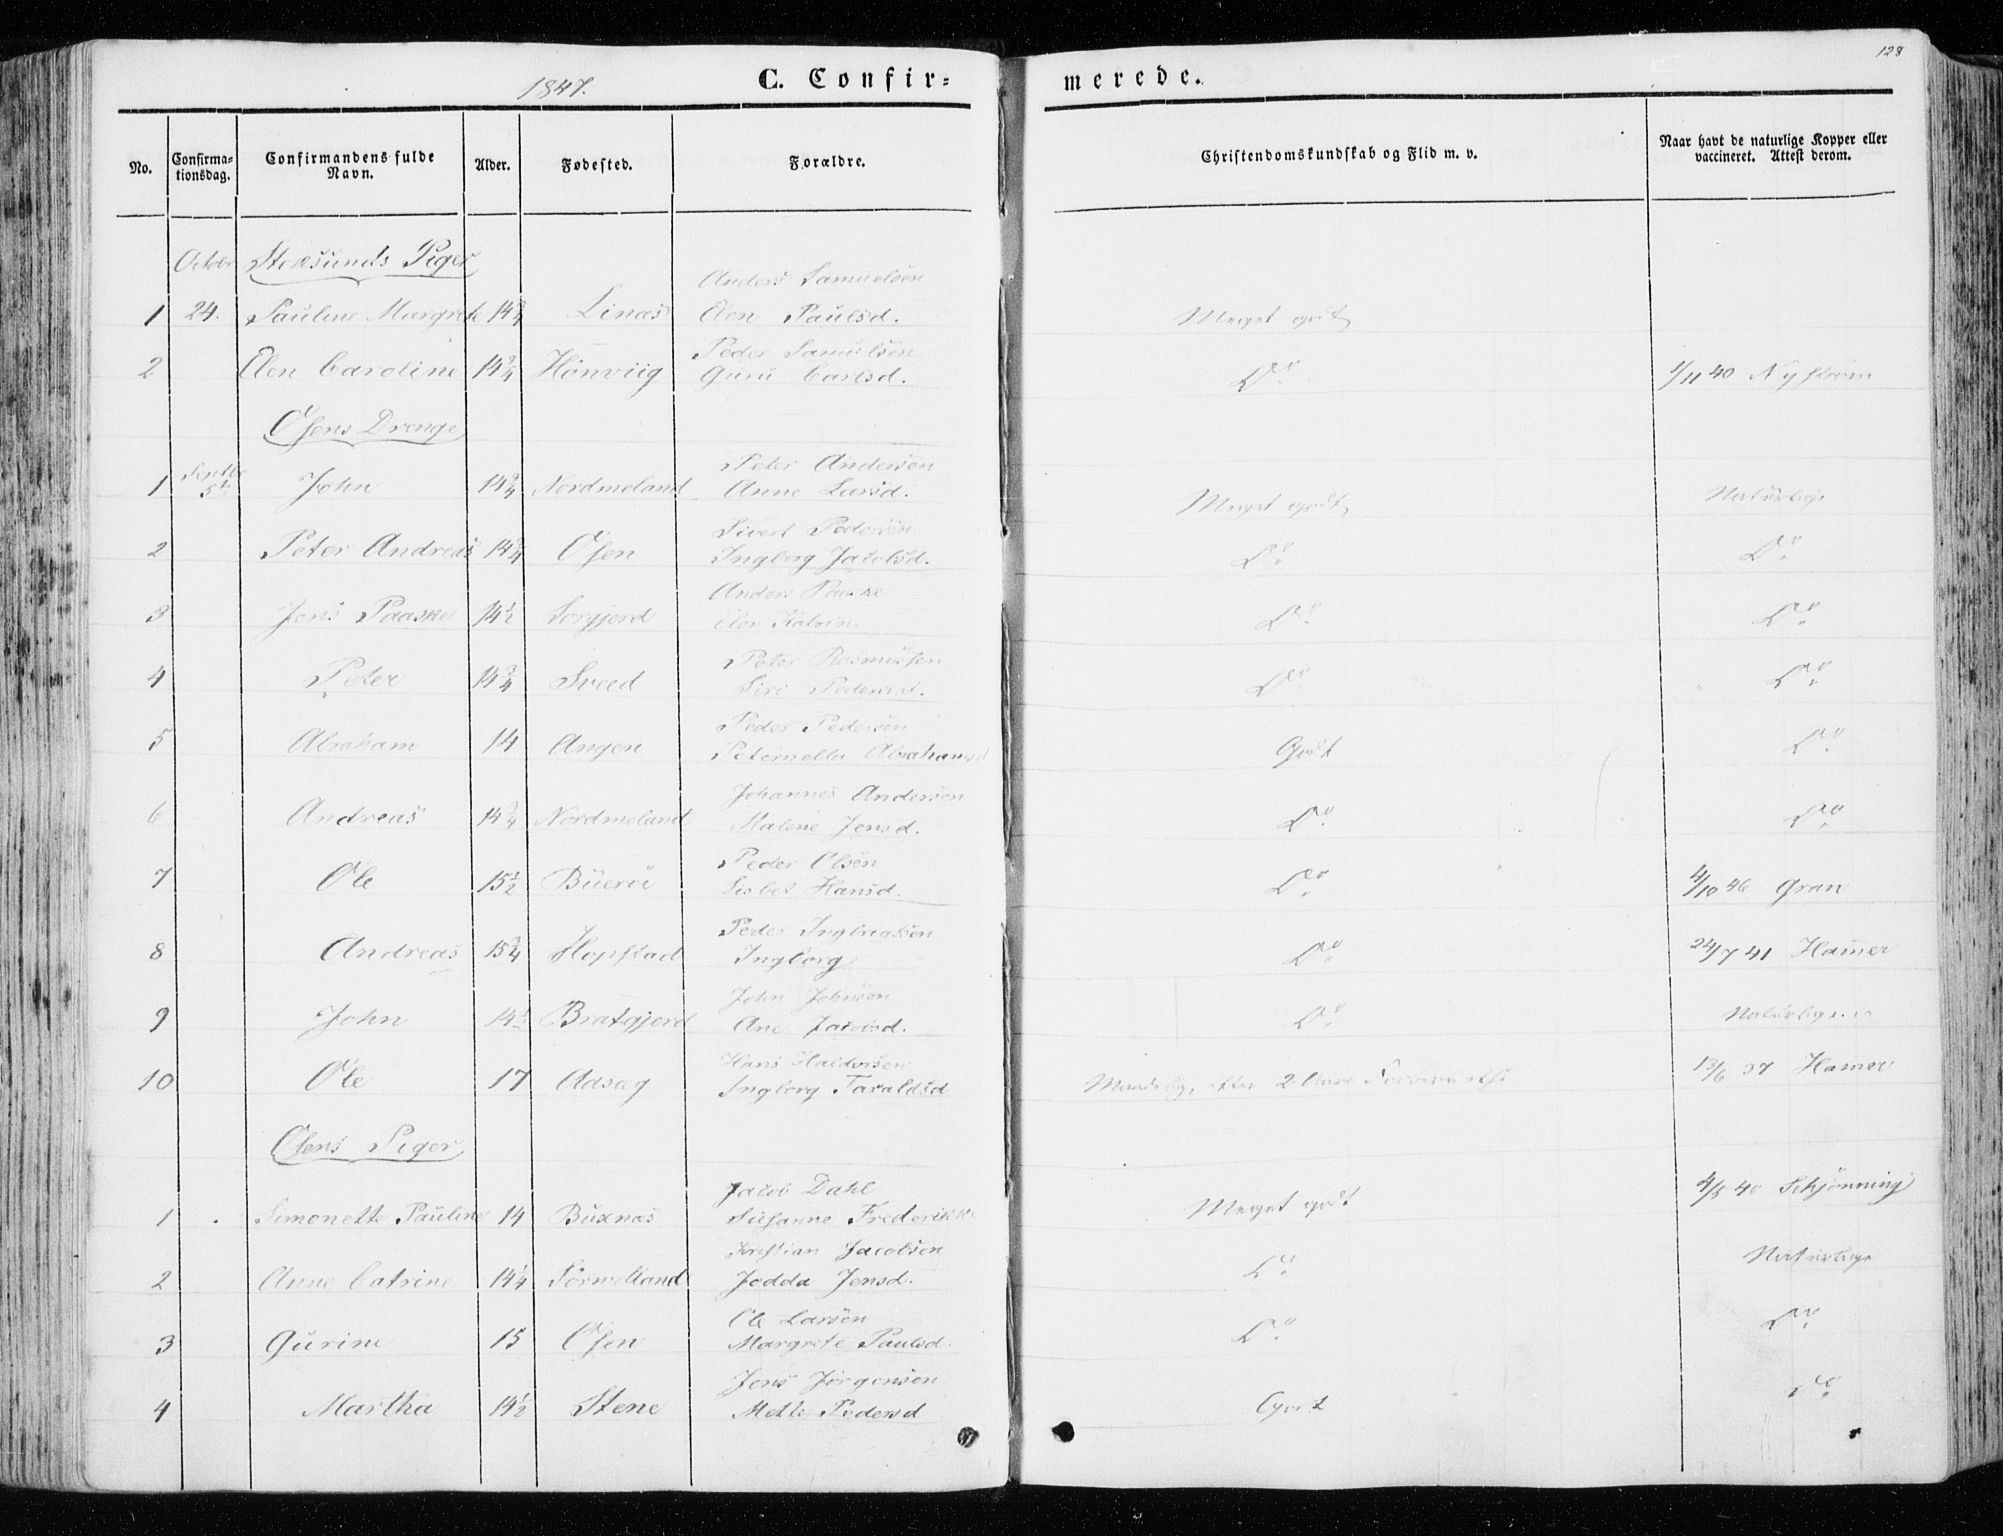 128
1847.
C. Confir=
merede.
No.
Confirma-
tionsdag.
Confirmandens fulde
Navn.
Alder.
Fødested.
Forældre.
Christendomskundskab og Flid m. v.
Naar havt de naturlige Kopper eller
vaccineret. Attest derom.
Octobr Stoksunds Piger
Anders Samuelsen
1 24. Pauline Margrete 14 3/4 Linæs Elen Paulsd. Meget godt
Peder Samuelsen
2 Elen Caroline 14 3/4 Hönviig Guru Carlsd. Do 1/11 40 Nystrøm
Osens Drenge
Septbr Peter Andersen
1 5te John 14 3/4 Nordmeland Anne Larsd. Meget godt Naturlige
Sivert Pedersen
2 Peter Andreas 14 3/4 Osen Ingborg Jacobsd. Do Do
Anders Paaske
3 Jens Paaske 14 1/2 Sorgjerd Elen Katrine Do Do
Peter Rasmussen
4 Peter 14 3/4 Sveed Siri Pedersd. Do Do
Peder Pedersen
5 Abraham 14 Angen Peternella Abrahamsd Godt Do
Johannes Andersen
6 Andreas 14 3/4 Nordmeland Malene Jensd. Do Do
Peder Olsen
7 Ole 15 1/2 Büeröe Lisbet Hansd. Do 4/10 46 Gran
Peder
8 Andreas 15 3/4 Hopstad Ingborg Do 24/7 41 Hamer
John Johnsen
9 John 14 Bratgjerd Ane Jacobsd. Do
Hans Haldorsen
10 Ole 17 Adsæg Ingborg Taraldsd efter 2 Aars 13/6 37 Hamer
Osens Piger
Jacob Dahl
1 Simonette Pauline 14 Buxnæs Susanne Frederikke Meget godt 4/5 40 Schjönning
Kristian Jacobsen
2 Anne Catrine 14 1/4 Sörmelland Jodda Jensd. Do Naturlige
Ole Larsen
3 Gurine 15 Osen Margrete Paulsd. Do Do
Jens Jörgensen
4 Martha 14 1/2 Stene Mette Pedersd Godt Do